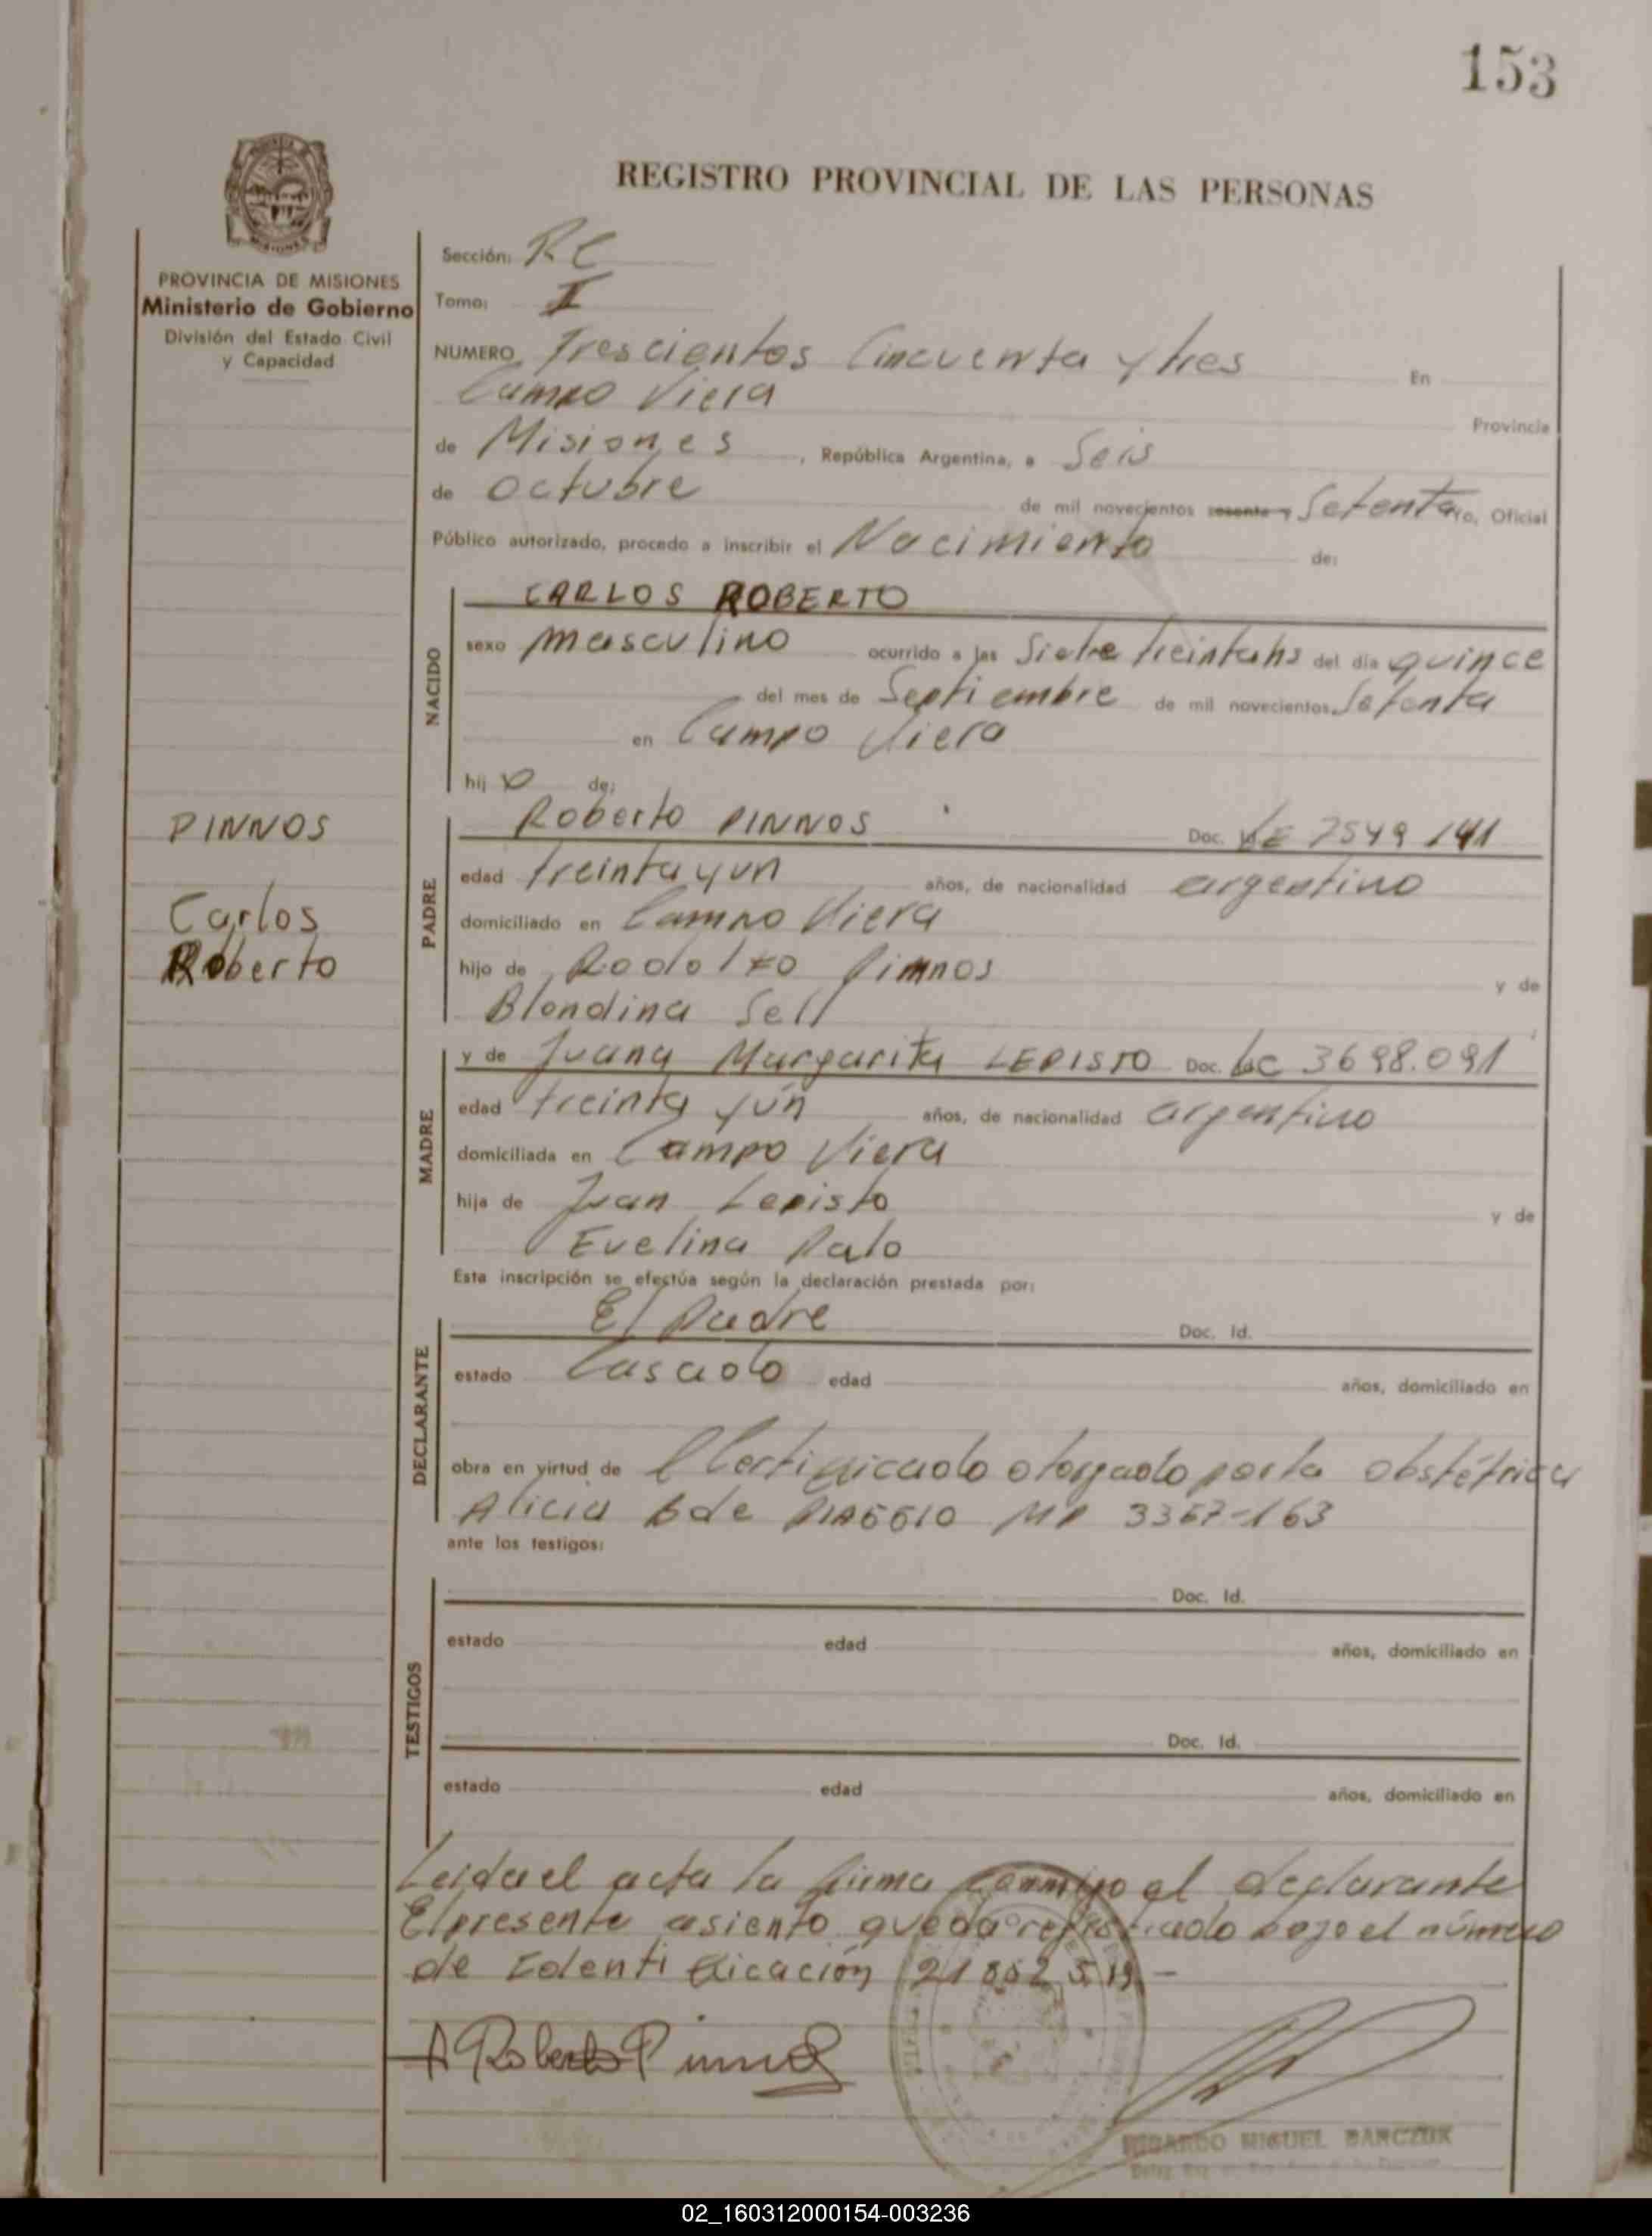 153
REGISTRO PROVINCIAL DE LAS PERSONAS
PROVINCIA DE MISIONES
Ministerio de Gobierno
División del Estado Civil
y Capacidad
Sección: RC
Tomo: II
NUMERO Trescientos Cincuenta y tres En
Campo Viera Provincia
de Misiones, República Argentina, a Seis
de Octubre de mil novecientos sesenta y Setenta yo, Oficial
Público autorizado, procedo a inscribir el Nacimiento de:
NACIDO
CARLOS ROBERTO
sexo masculino ocurrido a las Siete treinta hs del día quince
del mes de Septiembre de mil novecientos Setenta
en Campo Viera
hij o de:
PINNOS
Carlos
Roberto
PADRE
Roberto PINNOS Doc. LE 7549 141
edad treinta y un años, de nacionalidad argentino
domiciliado en Campo Viera
hijo de Rodolfo Pinnos y de
Blondina Sell
MADRE
y de Juana Margarita LEPISTO Doc. LC 3698.091
edad treinta y ún años, de nacionalidad argentino
domiciliada en Campo Viera
hija de Juan Lepisto y de
Evelina Palo
Esta inscripción se efectúa según la declaración prestada por:
DECLARANTE
El Padre Doc. Id.
estado Casado edad años, domiciliado en
obra en virtud de el Certificado otorgado por la obstétrica
Alicia B de MP 3367-163
ante los testigos:
TESTIGOS
Doc. Id.
estado edad años, domiciliado en
Doc. Id.
estado edad años, domiciliado en
Leida el acta la firma conmigo el declarante
El presente asiento queda registrado bajo el número
de Identificación 21852519 -
Roberto Pinnos
RICARDO MIGUEL BANCZUK
02_160312000154-003236